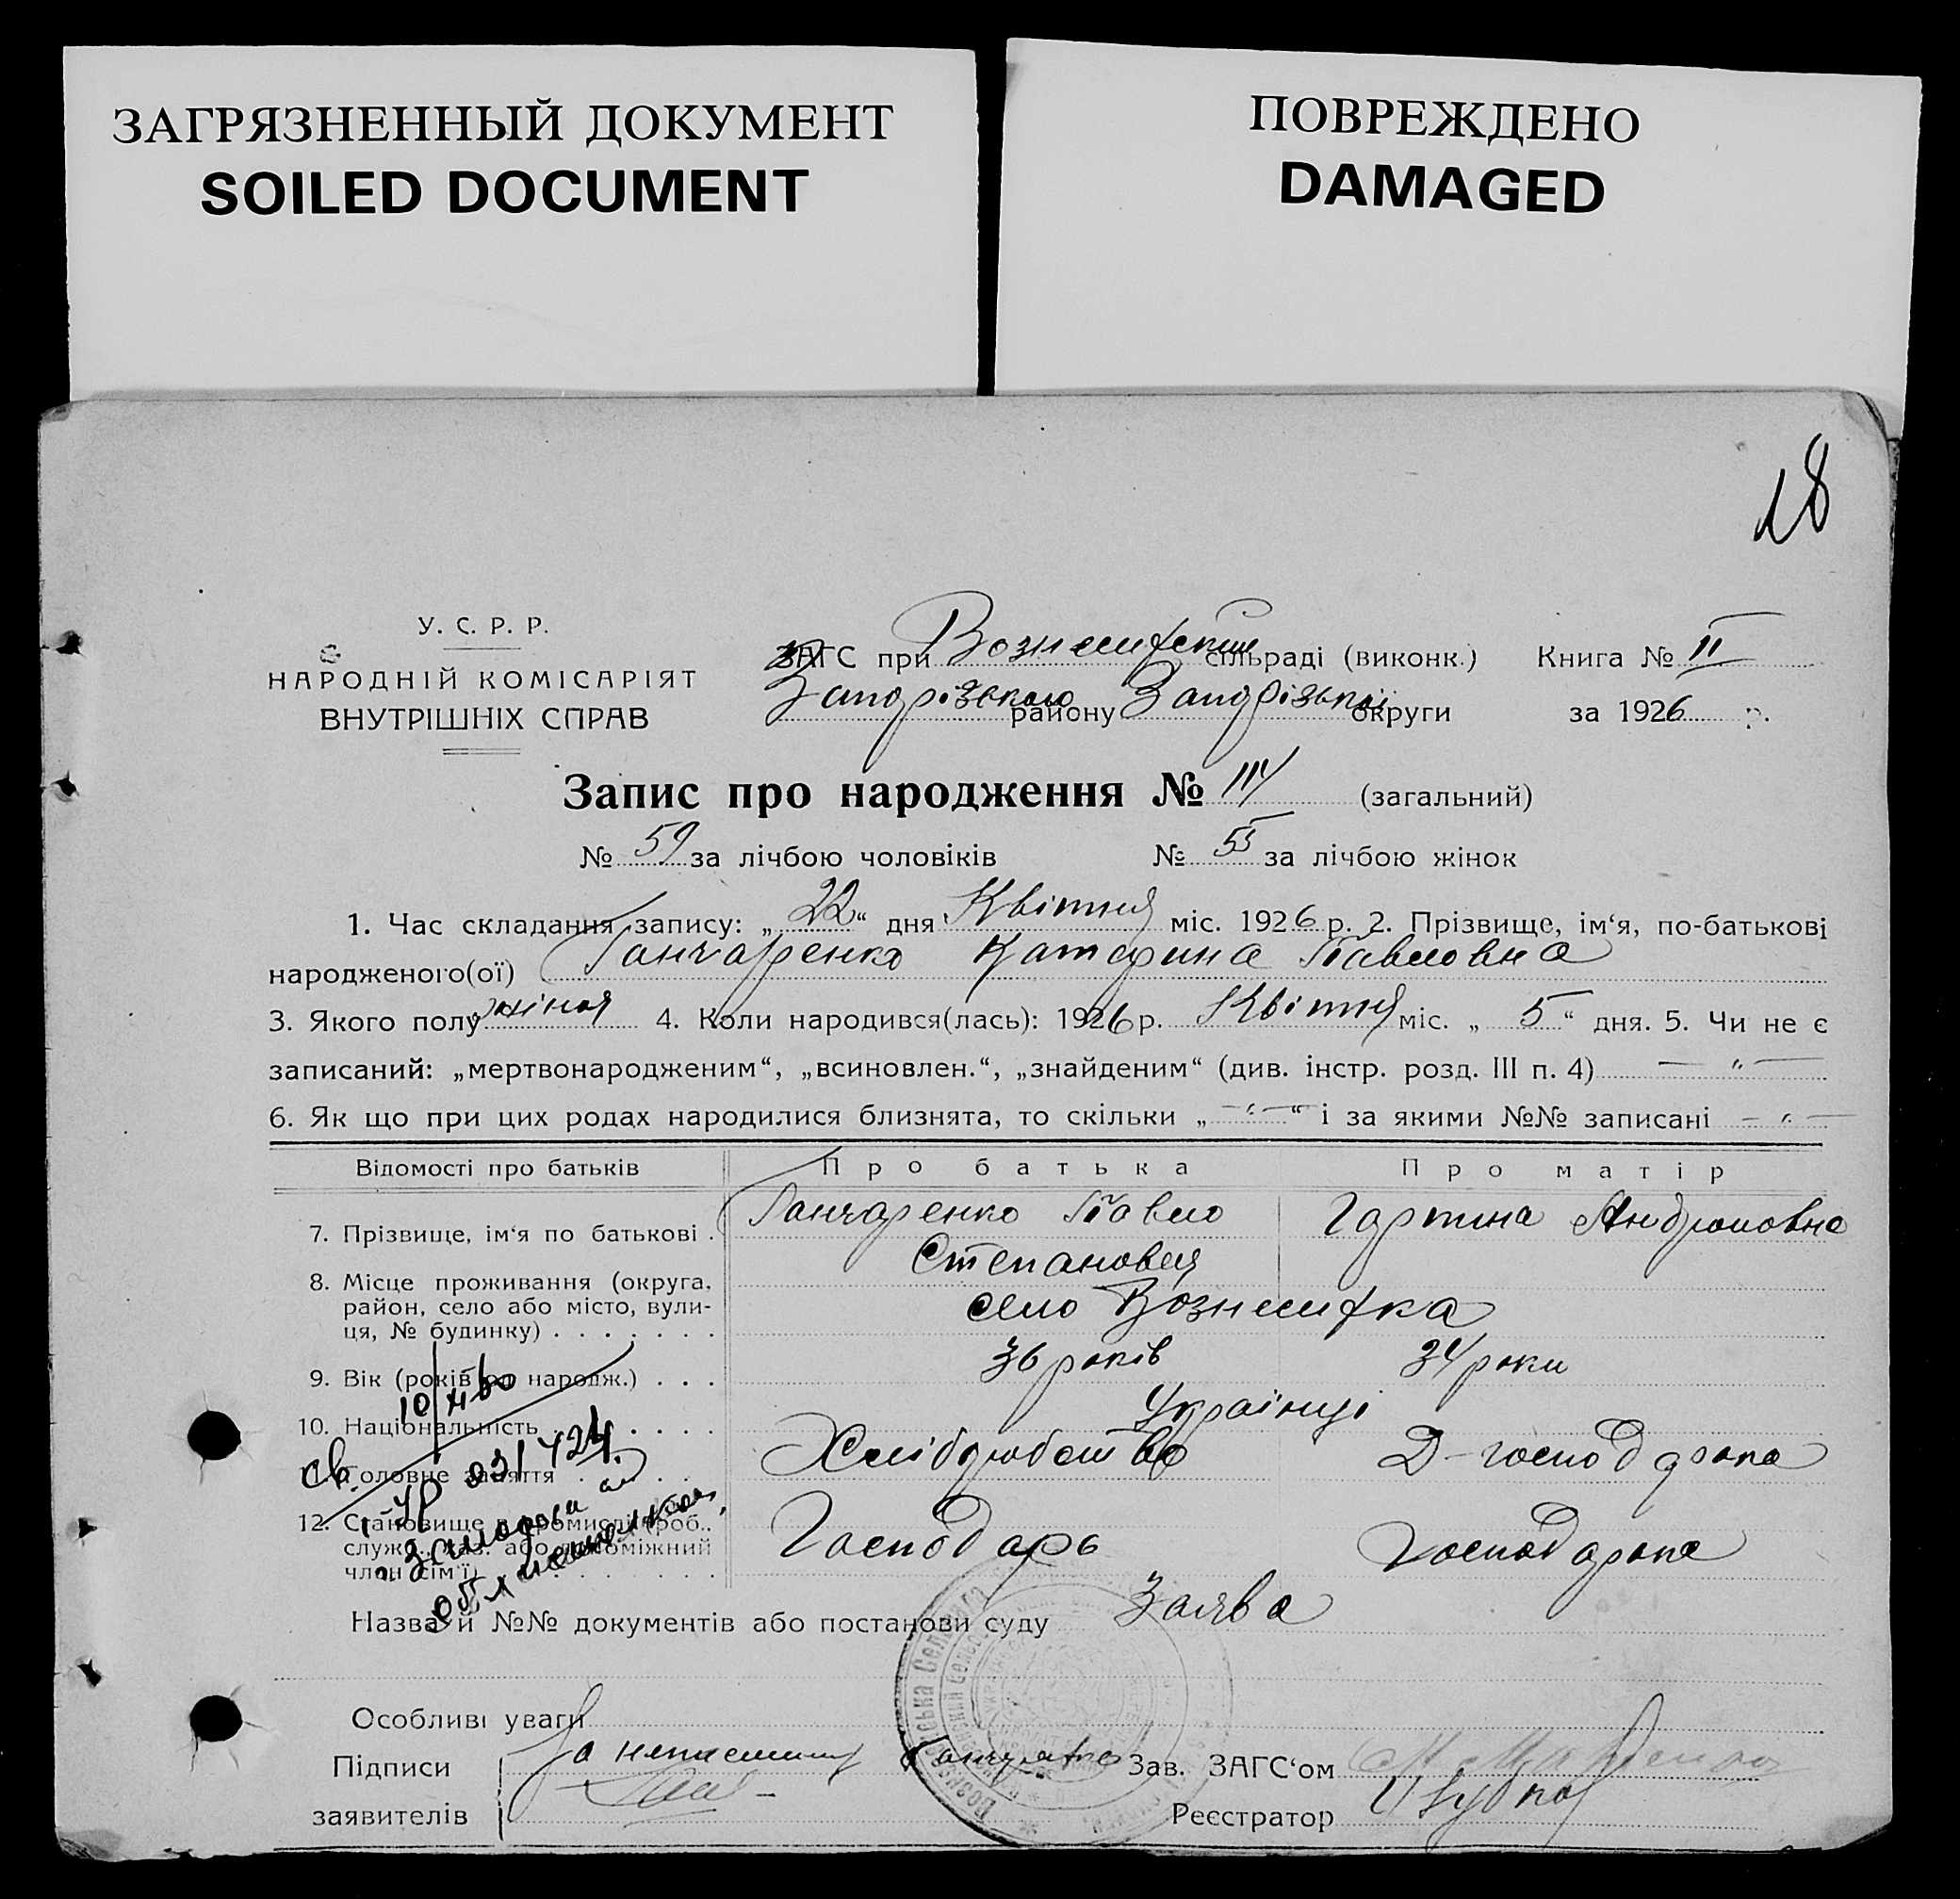 ЗАГРЯЗНЕННЫЙ ДОКУМЕНТ
SOILED DOCUMENT
ПОВРЕЖДЕНО
DAMAGED
18
У. С. Р. Р.
НАРОДНІЙ КОМІСАРІЯТ
ВНУТРІШНІХ СПРАВ
ЗАГС при Вознесенській сільраді (виконк.) Книга № II
Запорізького району Запорізької округи за 1926 р.
Запис про народження № 114 (загальний)
№ 59 за лічбою чоловіків № 55 за лічбою жінок
1. Час складання запису: „22“ дня Квітня міс. 1926 р. 2. Прізвище, ім‘я, по-батькові
народженого(ої) Гончаренко Катерина Павловна
3. Якого полу жіноч 4. Коли народився(лась): 1926 р. Квітня міс. „5“ дня. 5. Чи не є
записаний: „мертвонародженим“, „всиновлен.“, „знайденим“ (див. інстр. розд. III п. 4) — „ —
6. Як що при цих родах народилися близнята, то скільки „— „ —“ і за якими №№ записані — „ —
Відомості про батьків Про батька Про матір
7. Прізвище, ім‘я по батькові . Гончаренко Павло Андроновна
Степанович
8. Місце проживання (округа, район, село або місто, вули-
ця, № будинку) . . . . . . . село Вознесенка
9. Вік (років од народж.) . . . 36 років 34 роки
10. Національність . . . . . . Українці
11. Головне заняття . . . . Хліборобство Д-господарка
12. Становище в промислі (роб., Господарь Господарка
служ., хаз. або допоміжний
член сім‘ї) . . . . . . . .
Назва й №№ документів або постанови суду Заява
Особливі уваги
Підписи За неписьмену Гончаренко Зав. ЗАГС‘ом
заявителів Реєстратор